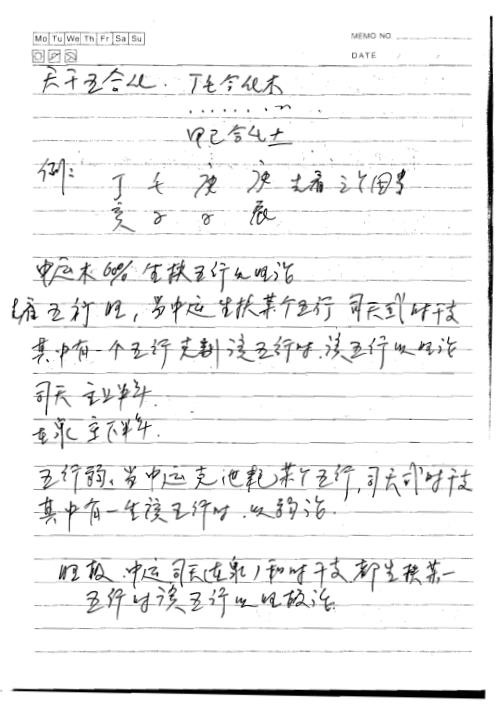 Mo Tu We Th Fr Sa Su
MEMO NO.
DATE / /
天干五合化. 丁壬合化木
甲己合化土
例:
丁 壬 庚 庚 先看三个因素
亥 子 子 辰
中运木 60% 生扶五行以旺论
五行旺,当中运生扶某个五行 司天或时干支
其中有一个五行克制该五行时.该五行以旺论
司天 主上半年.
在泉 主下半年.
五行弱、当中运克泄耗某个五行,司天或时干支
其中有一生该五行时.以弱论.
旺极.中运司天(在泉)和时干支都生扶某一
五行时该五行以旺极论.